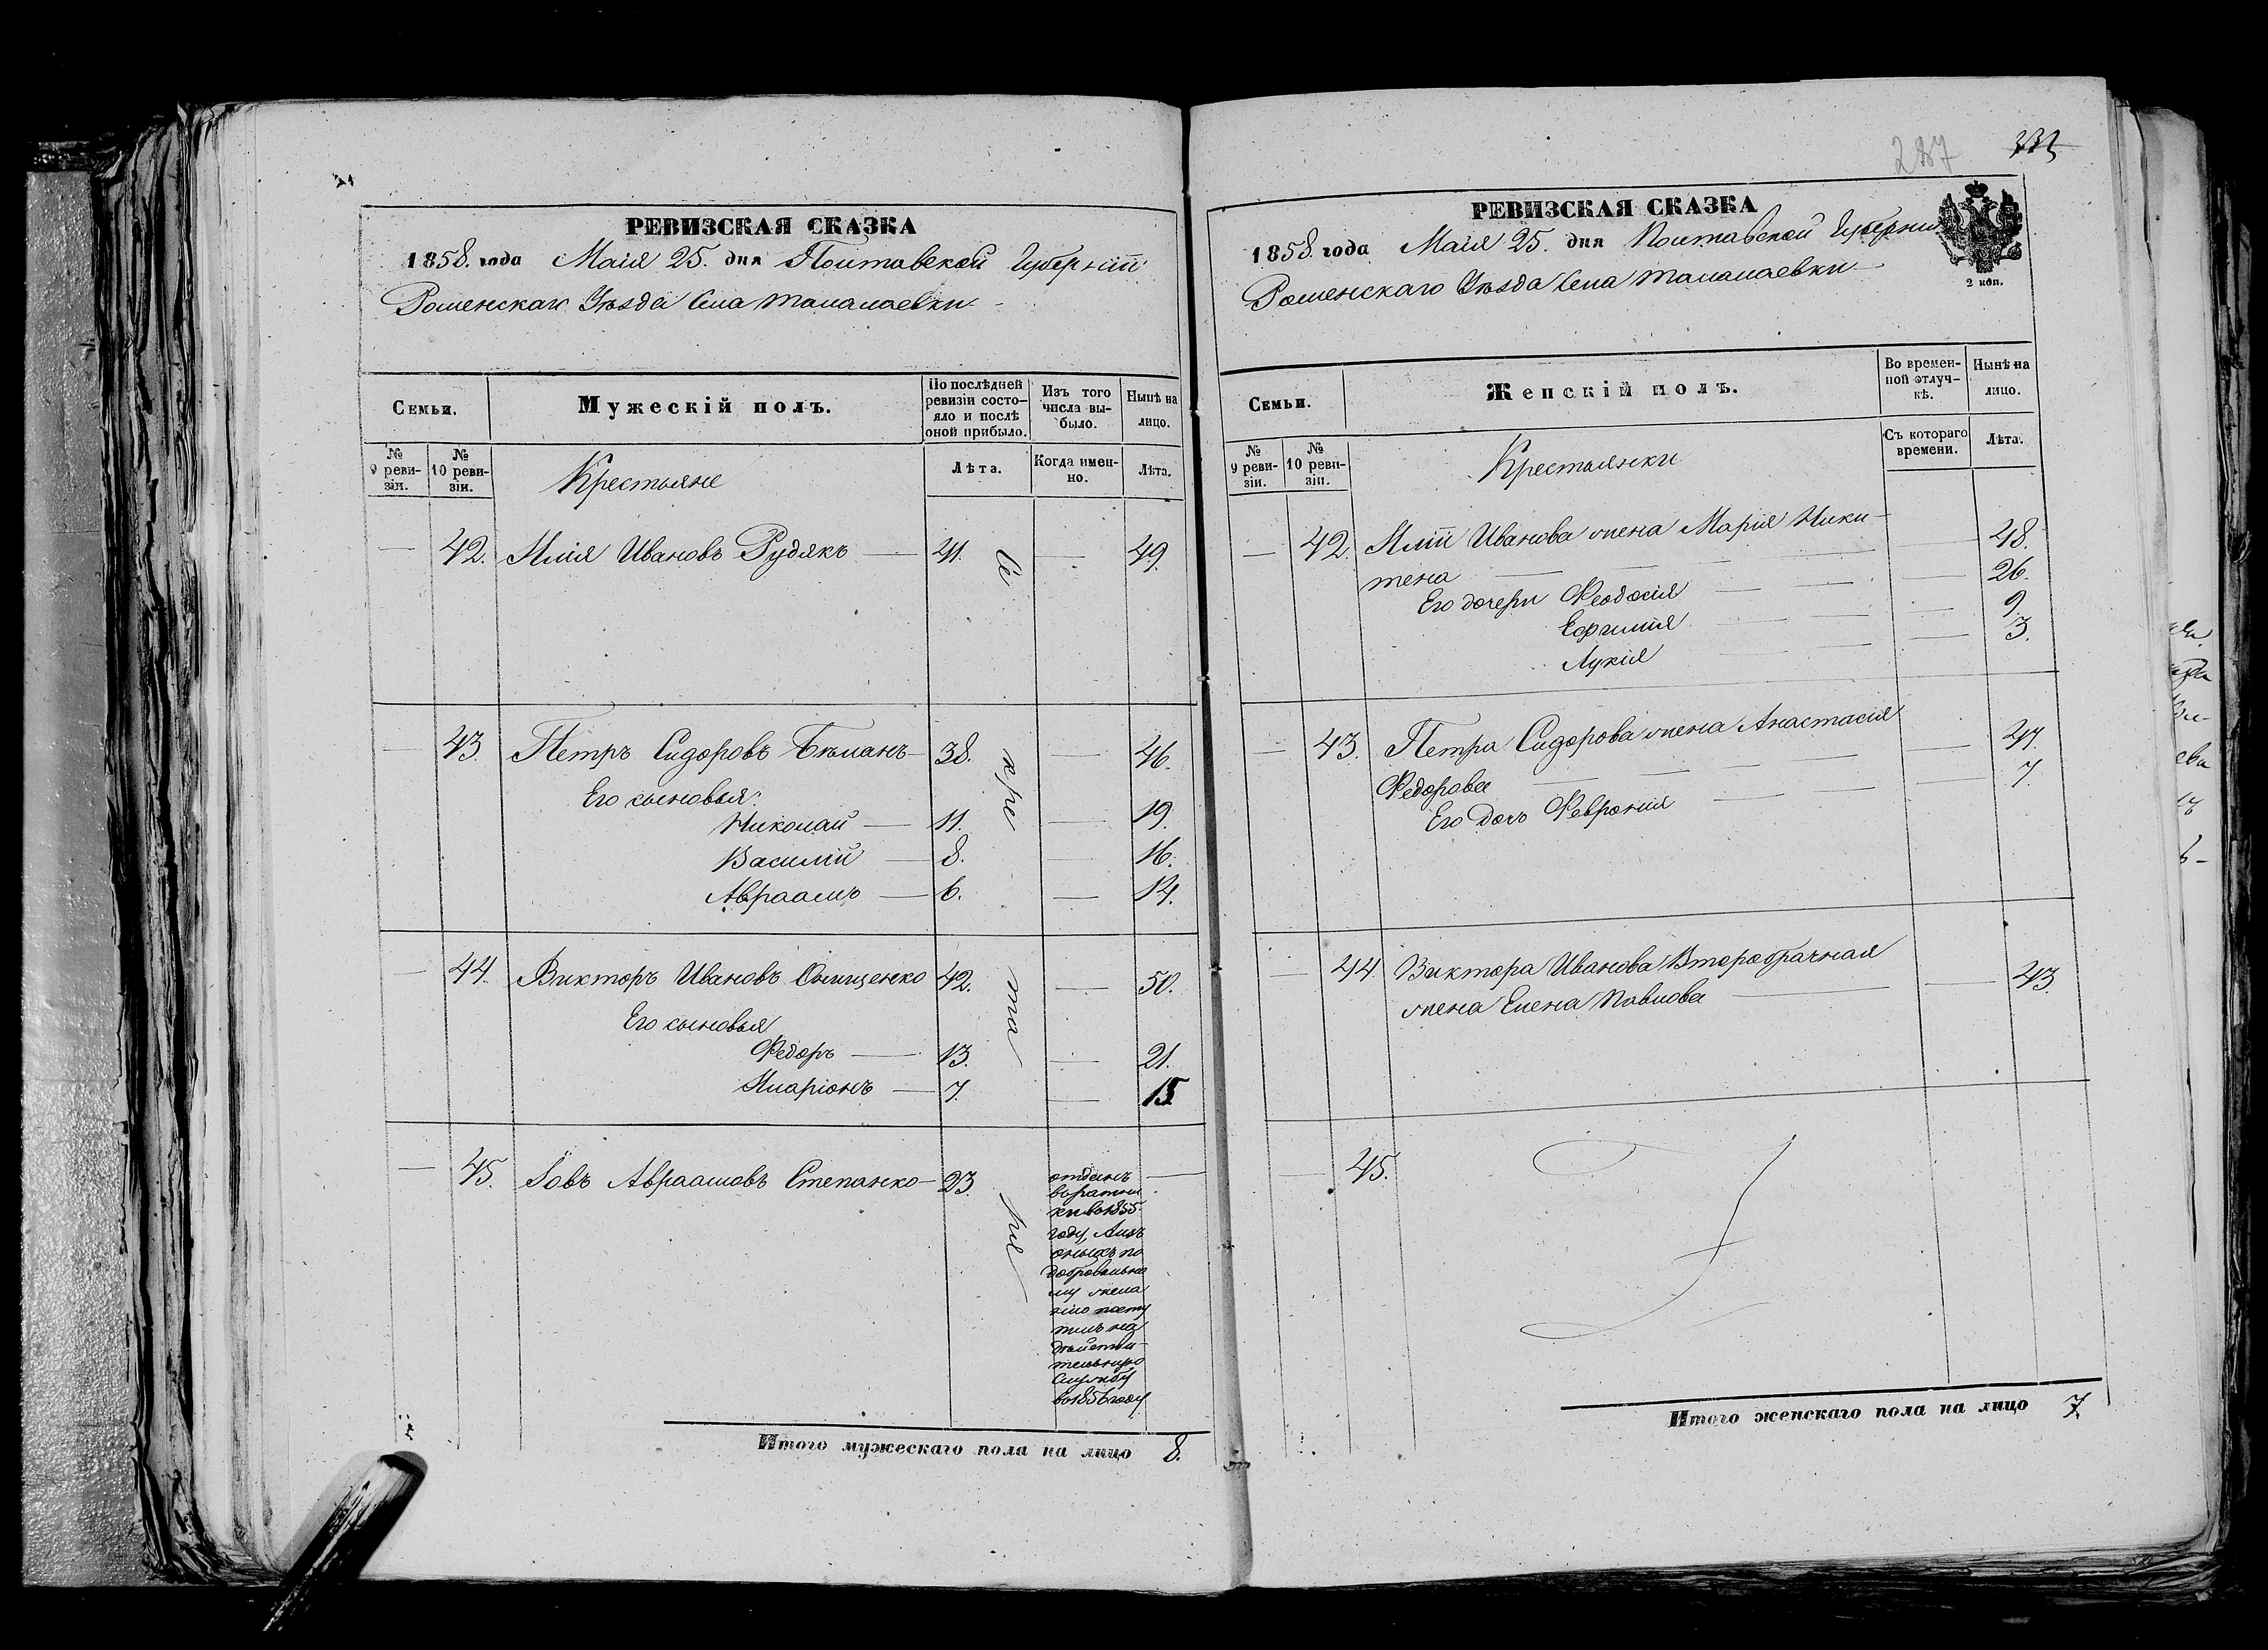 РЕВИЗСКАЯ СКАЗКА
1858. года Маія 25. дня Полтавской Губерніи
Роменскаго Уѣзда Села Талалаевки
Семьи.
Мужескій полъ.
По послѣдней ревизіи состояло и послѣ оной прибыло.
Изъ того числа выбыло.
Нынѣ на лицо.
№ 9 ревизіи.
№ 10 ревизіи.
Крестьяне
Лѣта.
Когда именно.
Лѣта.
— 42. Илія Ивановъ Рудякъ — 41. — 49.
— 43. Петръ Сидоровъ Бѣланъ — 38. — 46.
Его сыновья:
Николай — 11. — 19.
Василій — 8. — 16.
Авраамъ — 6. — 14.
— 44. Викторъ Ивановъ Онищенко 42. — 50.
Его сыновья
Федоръ — 13. — 21.
Иларіонъ — 7. — 15
— 45. Іовъ Авраамовъ Степанко — 23. —
отданъ
в ратни
ки в 1855
году, А изъ
оныхъ по
добровольно
му жела
нію посту
пилъ на
дѣйстви-
тельную
службу
в 1856 году
Се
кре
та
рь
Итого мужескаго пола на лицо 8.
287
РЕВИЗСКАЯ СКАЗКА
1858. года Маія 25. дня Полтавской Губерніи
Роменскаго Уѣзда Села Талалаевки
2 коп.
Семьи.
Женскій полъ.
Во временной отлучкѣ.
Нынѣ на лицо.
№ 9 ревизіи.
№ 10 ревизіи.
Крестьянки
Съ котораго времени.
Лѣта.
— 42. Иліи Иванова жена Марія Ники-
тена — 48.
Его дочери Феодосія — 26.
Ефимія — 9.
Лукія — 3.
— 43. Петра Сидорова жена Анастасія
Федорова — 47.
Его дочь Феврония — 7.
— 44. Виктора Иванова Второбрачная
жена Елена Павлова — 43.
— 45.
Итого женскаго пола на лицо 7.